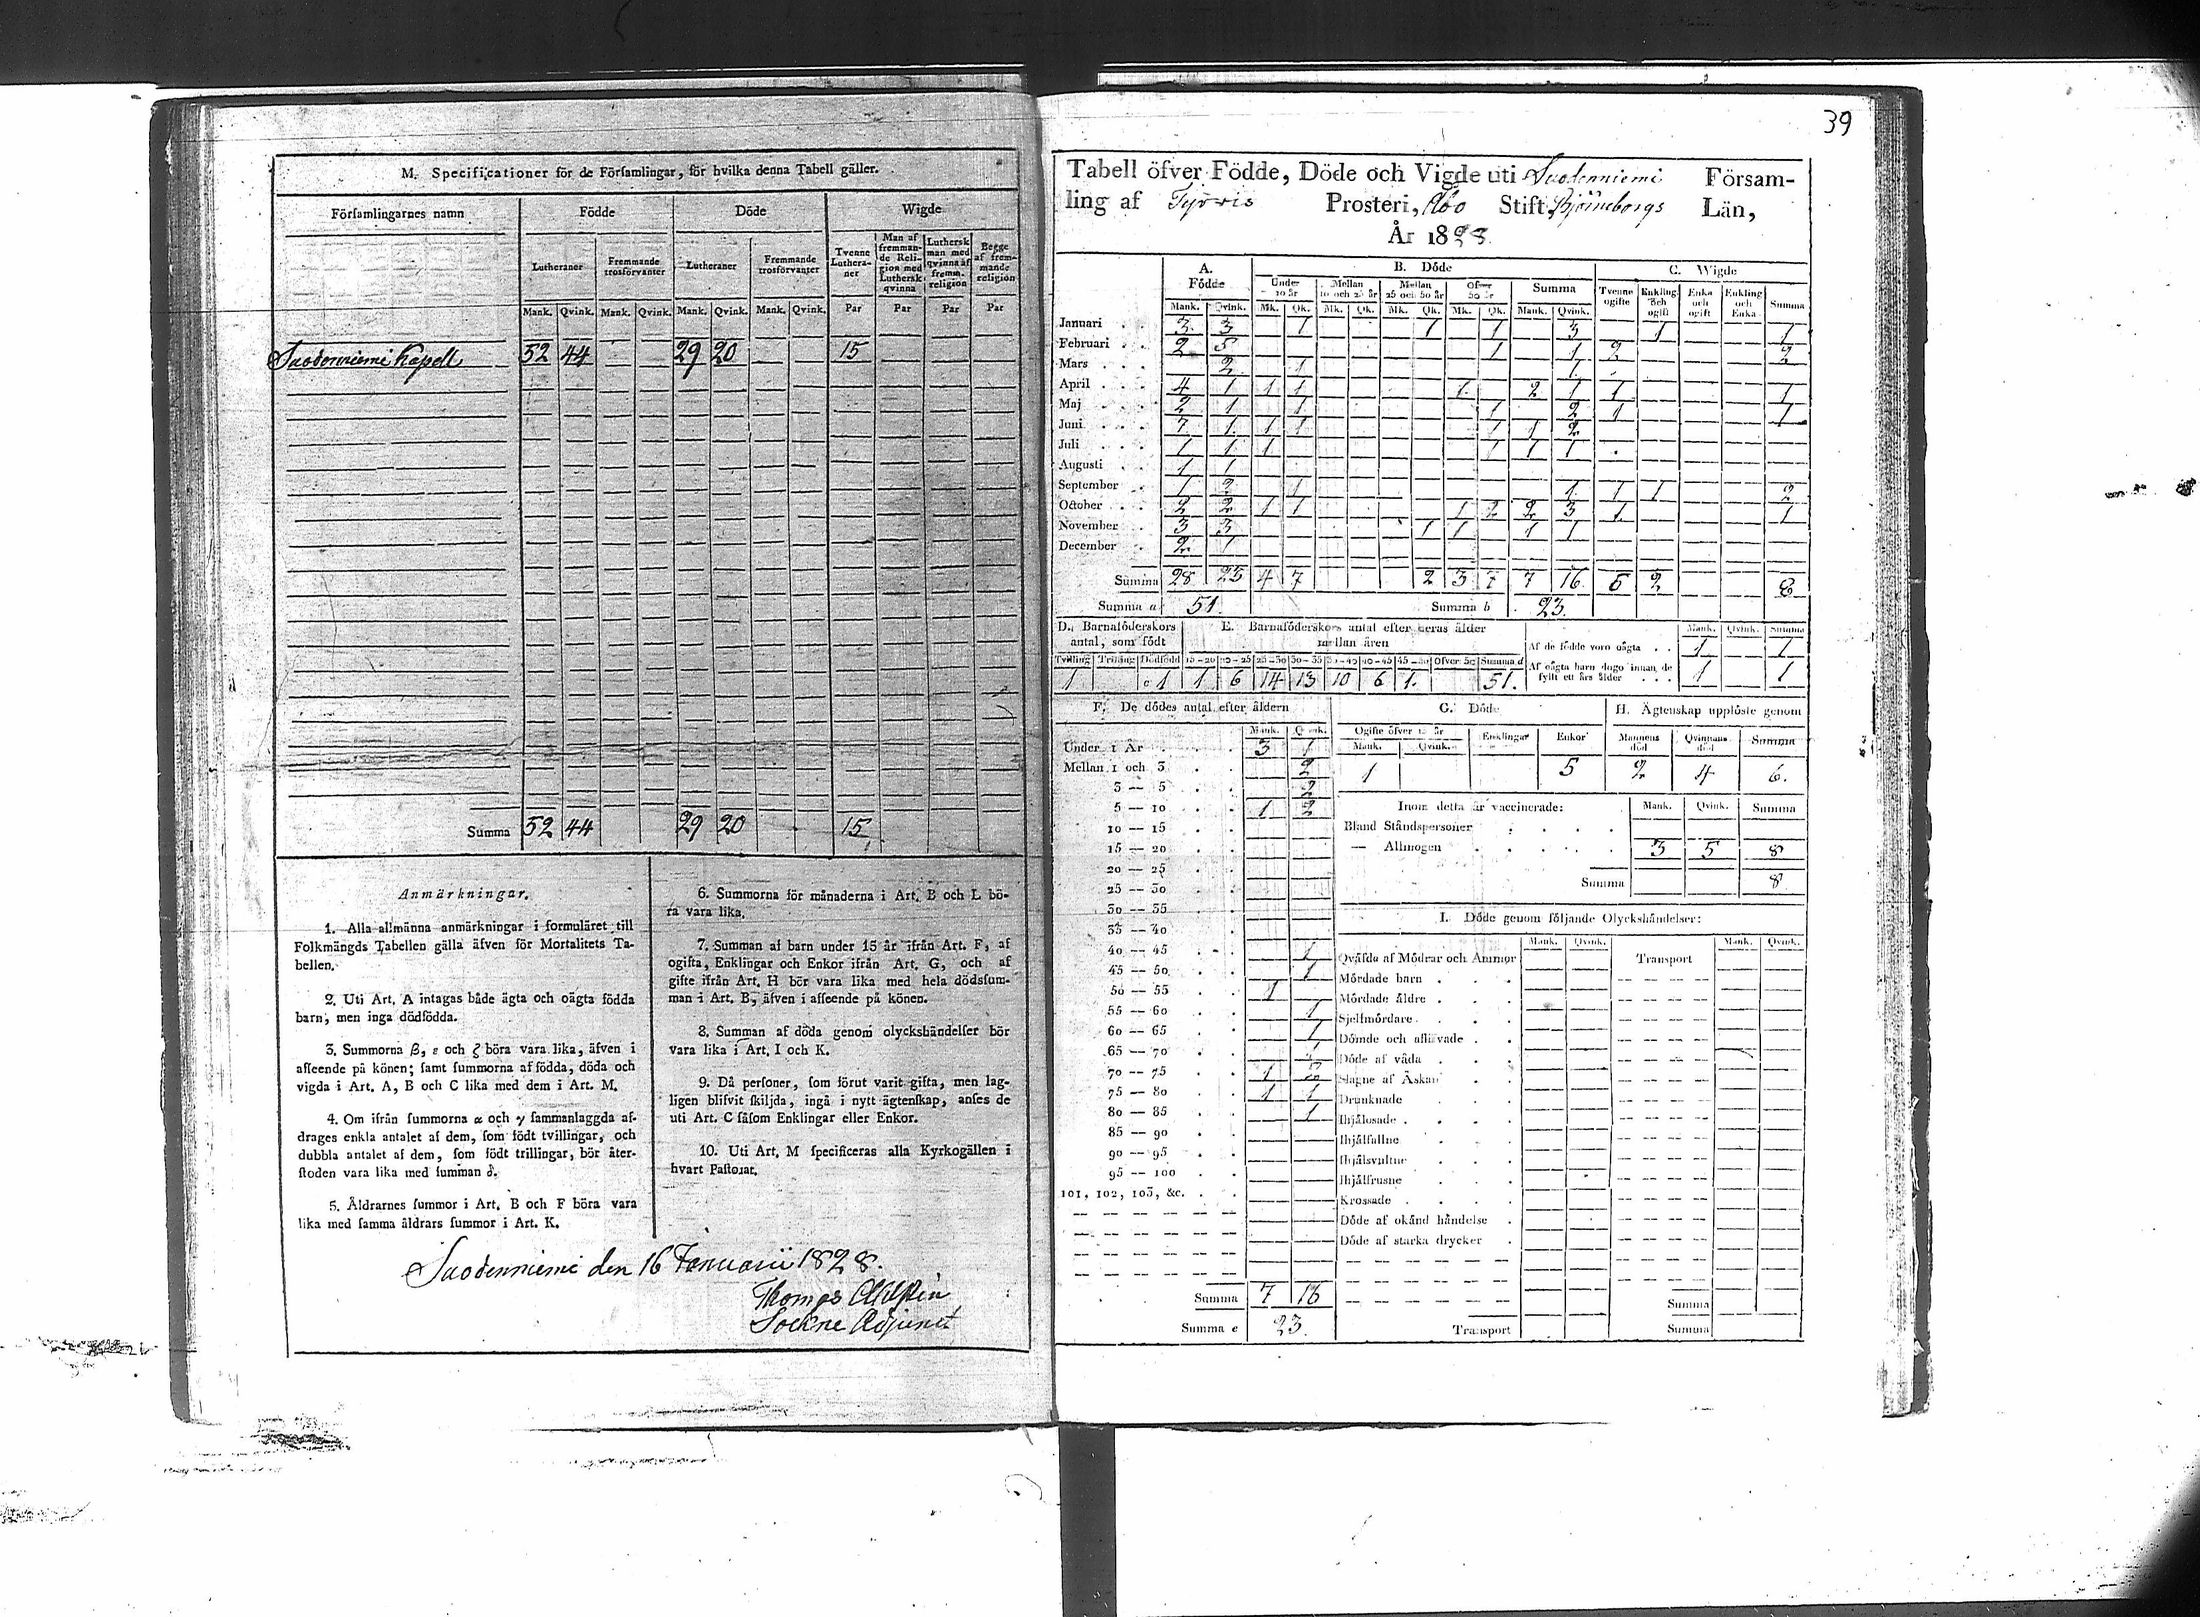 M. Specificationer för de Församlingar, för hvilka denna Tabell gäller.
Församlingarnes namn Födde Döde Wigde
Lutheraner Fremmande trosförvanter Lutheraner Fremmande trosförvanter Tvenne Lutheraner Man af fremmande Religion med Luthersk qvinna Luthersk man med qvinna af fremm. religion Begge af fremmande religion
Mank. Qvink. Mank. Qvink. Mank. Qvink. Mank. Qvink. Par Par Par Par
Suodenniemi Kapell 52 44 29 20 15
Summa 52 44 29 20 15
Anmärkningar.
1. Alla allmänna anmärkningar i formuläret till
Folkmängds Tabellen gälla äfven för Mortalitets Ta-
bellen.
2. Uti Art. A intagas både ägta och oägta födda
barn, men inga dödfödda.
3. Summorna β, ε och ζ böra vara lika, äfven i
afseende på könen; samt summorna af födda, döda och
vigda i Art. A, B och C lika med dem i Art. M.
4. Om ifrån summorna α och γ sammanlaggda af-
drages enkla antalet af dem, som födt tvillingar, och
dubbla antalet af dem, som födt trillingar, bör åter-
stoden vara lika med summan δ.
5. Åldrarnes summor i Art. B och F böra vara
lika med samma åldrars summor i Art. K.
6. Summorna för månaderna i Art. B och L bö-
ra vara lika.
7. Summan af barn under 15 år ifrån Art. F, af
ogifta, Enklingar och Enkor ifrån Art. G, och af
gifte ifrån Art. H bör vara lika med hela dödssum-
man i Art. B, äfven i afseende på könen.
8. Summan af döda genom olyckshändelser bör
vara lika i Art. I och K.
9. Då personer, som förut varit gifta, men lag-
ligen blifvit skiljda, ingå i nytt ägtenskap, anses de
uti Art. C såsom Enklingar eller Enkor.
10. Uti Art. M specificeras alla Kyrkogällen i
hvart Pastorat.
Suodenniemi den 16 Januarii 1828.
Thomas
Sockne Adjunct
39
Tabell öfver Födde, Döde och Vigde uti Suodenniemi Försam-
ling af Tyrvis Prosteri, Åbo Stift, Björneborgs Län,
År 1828.
A. Födde B. Döde C. Wigde
Under 10 år Mellan 10 och 25 år Mellan 25 och 50 år Öfver 50 år Summa Tvenne ogifte Enkling och ogift Enka och ogift Enkling och Enka Summa
Mank. Qvink. Mk. Qk. Mk. Qk. Mk. Qk. Mk. Qk. Mank. Qvink.
Januari 3 3 1 1 1 3 1 1
Februari 2 5 1 1 2 2
Mars 2 1 1
April 4 1 1 1 1 2 1 1 1
Maj 2 1 1 1 2 1 1
Juni 7 1 1 1 1 1 2
Juli 1 1 1 1 1 1
Augusti 1 1
September 1 2 1 1 1 1 2
October 2 2 1 1 1 2 2 3 1 1
November 3 3 1 1 1 1
December 2 1
Summa 28 23 4 7 2 3 7 7 16 6 2 8
Summa a 51. Summa b 23.
D. Barnaföderskors antal, som födt
E. Barnaföderskors antal efter deras ålder mellan åren
Tvilling Trilling Dödfödd 15-20 20-25 25-30 30-35 35-40 40-45 45-50 Öfver 50 Summa d
1 c 1 1 6 14 13 10 6 1. 51.
Mank. Qvink. Summa
Af de födde voro oägta 1 1
Af oägta barn dogo innan de fyllt ett års ålder 1 1
F. De dödes antal efter åldern
Mank. Qvink.
Under 1 År 3 1
Mellan 1 och 3 2
3 — 5 2
5 — 10 1 2
10 — 15
15 — 20
20 — 25
25 — 30
30 — 35
35 — 40
40 — 45 1
45 — 50 1
50 — 55 1
55 — 60 1
60 — 65 1
65 — 70
70 — 75 1
75 — 80 1 1
80 — 85 1
85 — 90
90 — 95
95 — 100
101, 102, 103, &c.
Summa 7 16
Summa e 23.
G. Döde
Ogifte öfver 15 år Enklingar Enkor
Mank. Qvink.
1 5
H. Ägtenskap upplöste genom
Mannens död Qvinnans död Summa
2 4 6.
Inom detta år vaccinerade: Mank. Qvink. Summa
Bland Ståndspersoner
— Allmogen 3 5 8
Summa 8
I. Döde genom följande Olyckshändelser:
Mank. Qvink. Mank. Qvink.
Qväfde af Mödrar och Ammor Transport
Mördade barn
Mördade äldre
Sjelfmördare
Dömde och aflifvade
Döde af våda
Slagne af Åskan
Drunknade
Ihjälosade
Ihjälfallne
Ihjälsvultne
Ihjälfrusne
Krossade
Döde af okänd händelse
Döde af starka drycker
Summa
Transport Summa